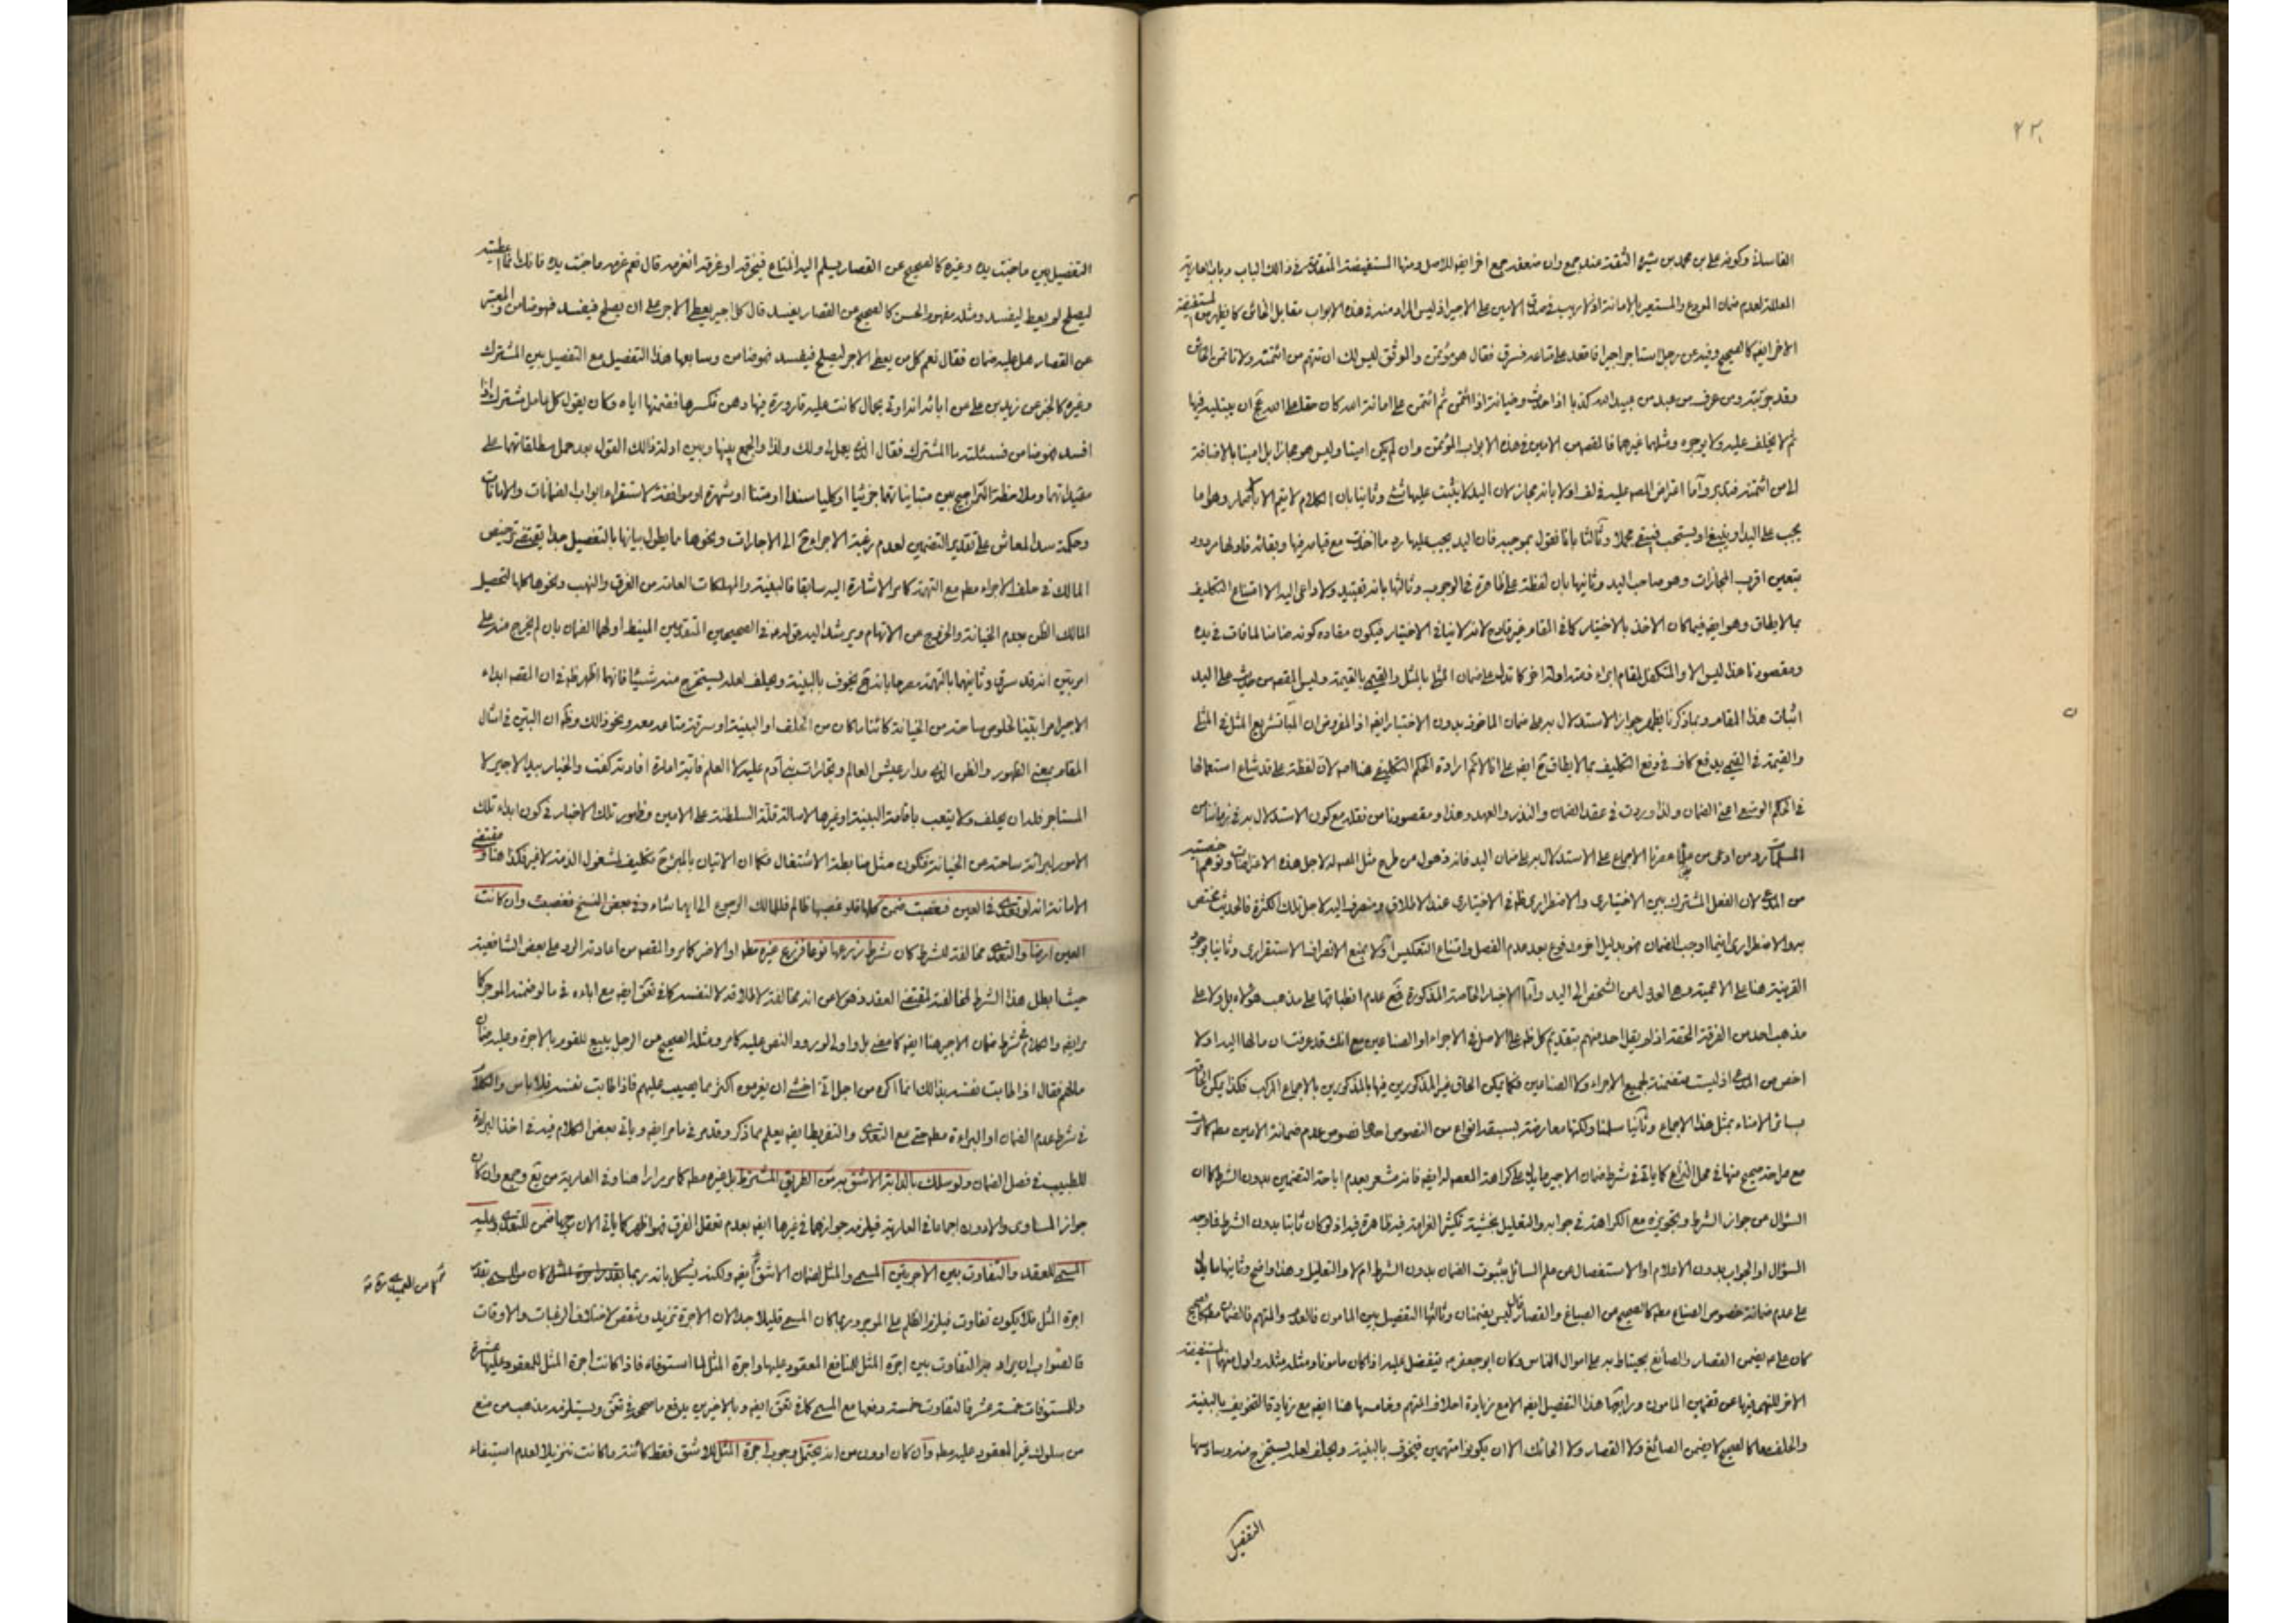 الفاسدة وكونه علي بن محمد بن شيرة الثقة عند جمع وان ضعفه جمع اخر ايضا للاصل ومنها المستفيضة المتقدمة في ذالك الباب وباب العارية
المعللة لعدم ضمان المودع والمستعير بالامانة اذ لا ريب في صدق الامين على الاجير اذ ليس المراد منه في هذه الابواب مقابل الخائن كما يظهر من المستفيضة
الاخر ايضا كالصحيح وفيه عن رجل استاجر اجيرا فاقعده على متاعه فسرق فقال هو مؤتمن والموثق ليس لك ان تتهم من ائتمنته ولا تاتمن الخائن
وقد جربته
ثم لا يخلف عليه ولا يوجره ومثلهما غيرهما فالمقصود من الامين في هذه الابواب المؤتمن وان لم يكن امينا وليس هو مجازا بل امينا بالاضافة
الى من ائتمنه فتدبر واما اعتراض المصنف عليه اولا بانه مجاز لان اليد لا يثبت عليها شئ وثانيا بان الكلام لا يتم الا باضمار وهو اما
يجب على اليد او ينبغي او يستحب فيبقى مجملا وثالثا بانا نقول بموجبه فان اليد يجب عليها رد ما اخذت مع قيامه فيها وبقائه فاولها مردود
بتعين اقرب المجازات وهو صاحب اليد وثانيها بان لفظة على ظاهرة في الوجوب وثالثها بانه تقييد ولا داعي اليه الا امتناع التكليف
بما لا يطاق وهو ايضا فيما كان الاخذ بالاختيار كما في المقام غير قادح لانه لا ينافي الاختيار فيكون مفاده كونه ضامنا لما فات في يده
ومقصودنا هذا ليس الا والمتكفل لمقام ابراء ذمته ادلة اخر كما تدل على ضمان المثلي بالمثل والقيمي بالقيمة وليس المقصود من حديث على اليد
اثبات هذا المقام وبما ذكرنا يظهر جواز الاستدلال به على ضمان الماخوذ بدون الاختيار ايضا اذ المفروض ان تشريع المثل في المثلي
والقيمة في القيمي يدفع كاف في رفع التكليف بما لا يطاق ايضا على انا لا نم ارادة الحكم التكليفي هنا اصلا لان لفظة على قد شاع استعمالها
في الحكم الوضعي اعني الضمان ولذا وردت في عقد الضمان والنذر والعهد وهذا ومقصودنا من نقله مع كون الاستدلال به في زماننا من
المسلمات رد من ادعى من معاصرينا الاجماع على الاستدلال به على ضمان اليد فانه ذهول من طرح مثل المصنف له لاجل هذه الاعتراضات وتوهم اخصيته
من المدعى لان الفعل المشترك بين الاختياري والاضطراري ظهر في الاختياري عند الاطلاق ومنصرف اليه لاجل تلك الكثرة فالحديث مختص
به والاضطراري اينما اوجب الضمان فهو بدليل اخر مدفوع بعدم الفصل وامتناع التعكيس اولا بمنع الانصراف الاستقرائي وثانيا بوجود
القرينة هنا على الاعمية وهي العدول من الشخص الى اليد واما الاخبار الخاصة المذكورة فمع عدم انطباقها على مذهب هؤلاء بل ولا على
مذهب احد من الفرقة المحقة اذ لم يقل احد منهم بتقديم كل ظهر على الاصل في الاجراء او الصناعين مع انك قد عرفت ان مالها اليه اولا
اخص من المدعى اذ ليست متضمنة لجميع الاجراء ولا الصناعين فكما يمكن الحاق غير المذكورين فيها بالمذكورين بالاجماع المركب فكذا يمكن الحاقهم
بسائر الامناء بمثل هذا الاجماع وثانيا سلمنا ولكنها معارضة بسبعة انواع من النصوص احدها نصوص عدم ضمانة الامين مطلقا كما مرت
مع صراحة صحيح منها في محل النزاع كما ياتي في شرط ضمان الاجير ما يدل على كراهة المعصوم له ايضا فانه مشعر بعدم اباحة التضمين بدون الشرط كما ان
السؤال من جواز الشرط وتجويزه مع الكراهة في جوابه والتعليل بخشية تكثير الغرامة فيه ظاهرة فيه اذ لو كان ثابتا بدون الشرط فلا وجه
السؤال او الجواب بدون الاعلام او الاستفصال عن علم السائل بثبوت الضمان بدون الشرط ام لا والتعليل وهذا واضح وثانيها ما يدل
على عدم ضمانة خصوص الصناع مطلقا كالصحيح عن الصباغ والقصار قال ليس يضمنان وثالثها التفصيل بين المامون فالعدم والمتهم فالضمان مطلقا كالصحيح
كان علي ع يضمن القصار والصائغ يحتاط به على اموال الناس وكان ابو جعفر ع يتفضل عليه اذا كان مامونا ومثله مثله واول منها المستفيضة
الاخر للنهي فيها عن تضمين المامون ورابعها هذا التفصيل ايضا الا مع زيادة احلاف المتهم وخامسها هنا ايضا مع زيادة التخويف بالبينة
والحلف معا كالصحيح لا يضمن الصائغ ولا القصار ولا الحائك الا ان يكونوا متهمين فيخوف بالبينة ويحلف لعله يستخرج منه وسادسها
التفصيل
التفصيل بين ما جنت يده وغيره كالصحيح عن القصار يسلم اليه المتاع فيخرقه او غرقه اتغرمه قال نعم غرمه ما جنت يده فانك انما اعطيته
ليصلح لم يعط ليفسد ومثله مفهوم الحسن كالصحيح عن القصار يفسد قال كل اجير يعطي الاجر على ان يصلح فيفسد فهو ضامن والمعتبر
عن القصار هل عليه ضمان فقال نعم كل من يعطى الاجر ليصلح فيفسد فهو ضامن وسابعها هذا التفصيل مع التفصيل بين المشترك
وغيره كالخبر عن زيد بن علي عن ابائه انه اوتي بحمال كانت عليه قارورة فيها دهن فكسرها فضمنها اياه وكان يقول كل عامل مشترك اذا
افسد فهو ضامن فسئلته ما المشترك فقال الذي يعمل لي ولك ولذا والجمع بينها وبين ادلة ذالك القول بعد حمل مطلقاتهما على
مقيداتهما وملاحظة التراجيح بين متبايناتهما جزئيا او كليا سندا او متنا او شهرة او موافقة لاستقراء ابواب الضمانات والامانات
وحكمة سد المعاش على تقدير التضمين لعدم رغبة الاجراء الى الاجارات ونحوها مما يطول بيانها بالتفصيل جدا يقتضي ترخيص
المالك في حلف الاجراء مطلقا مع التهمة كما مر الاشارة اليه سابقا فالبينة والمهلكات العامة من الغرق والنهب ونحوها كلها لتحصيل
المالك الظن بعدم الخيانة والخروج عن الاتهام ويرشد اليه قوله في الصحيحين المتقدمين المنيط اولهما الضمان بان لم يخرج منه على
امر بين انه قد سرق وثانيهما بالتهمة مصرحا بانه يخوف بالبينة ويحلف لعله يستخرج منه شيئا فانهما اظهر ظهور في ان المقصود ابداء
الاجير امرا بينا لخلوص ساحته من الخيانة كائنا ما كان من الحلف او البينة او سرقة متاعه معه ونحو ذالك وظهر ان البين في امثال
المقام بمعنى الظهور والظن الذي مدار عيش العالم وتجارات بني آدم عليه لا العلم فاية امارة افادته كفت والخيار بيد الاجير لا
المستاجر فله ان يحلف ولا يتعب باقامة البينة او غيرها لاصالة قلة السلطنة على الامين وظهور تلك الاخبار في كون ابداء تلك
الامور لبرائة ساحته من الخيانة فتكون مثل ضابطة الاشتغال فكما ان الاتيان بالمبرئ تكليف لمشغول الذمة لا غير فكذا هنا ومقتضى
الامانة انه لو تعدى في العين فغصبت ضمن كلها فلو غصبها ظالم فللمالك الرجوع الى ايهما شاء وفي بعض النسخ فغصبت وان كانت
العين ارضا والتعدى مخالفة للشرط كان شرط زرعها نوعا فزرع غيره مطلقا او الاضر كما مر والمقصود من اعادته الرد على بعض الشافعية
حيث ابطل هذا الشرط لمخالفته لمقتضى العقد وذهولا من انه مخالفة لاطلاقه لا لنفسه كما في تعق ايضا مع اباءه في ما لو ضمنه الموجر كما
مر ايضا والكلام في شرط ضمان الاجير هنا ايضا كما مضى بل واولى لورود النص عليه كما مر ومثله الصحيح عن الرجل يبيع للقوم بالاجرة وعليه ضمان
مالهم فقال اذا طابت نفسه بذالك انما اكره من اجل اني اخشى ان يغرموه اكثر مما يصيب عليهم فاذا طابت نفسه فلا باس والكلام
في شرط عدم الضمان او البراءة مطلقا حتى مع التعدى والتفريط ايضا يعلم بما ذكر وقد مر في ما مر ايضا وياتي بعض الكلام فيه في اخذ البراءة
للطبيب في فصل الضمان ولو سلك بالدابة الاشق من الطريق المشترط بل غيره مطلقا كما مر مرارا هنا وفي العارية من تع وجمع وان كان
جواز المساوى والادون اجماعا في العارية فيلزمه جوازهما في غيرها ايضا بعدم تعقل الفرق فهو اظهر كما ياتي الان ضمن للتعدى وعليه
المسمى للعقد والتفاوت بين الاجرتين المسمى والمثل لضمان الاشق ايضا ولكنه يشكل بانه ربما كان المسمى بقدر
اجرة المثل فلا يكون تفاوت فيلزم الظلم على الموجر وربما كان المسمى قليلا جدا لان الاجرة تزيد وتنقص لاختلاف الرغبات والاوقات
فالصواب ان يراد التفاوت بين اجرة المثل للمنافع المعقود عليها واجرة المثل لما استوفاه فاذا كانت اجرة المثل للمعقود عليها عشرة
وللمستوفات خمسة عشر فالتفاوت خمسة دفعها مع المسمى كما في تعق ايضا وبالاخيرين يدفع ما صححوه في تعق ويستلزمه مذهب من منع
من سلوك غير المعقود عليه مطلقا وان كان ادون من انه يحتمل وجوب اجرة المثل للاشق فقط كائنة ما كانت تنزيلا لعدم استيفاء